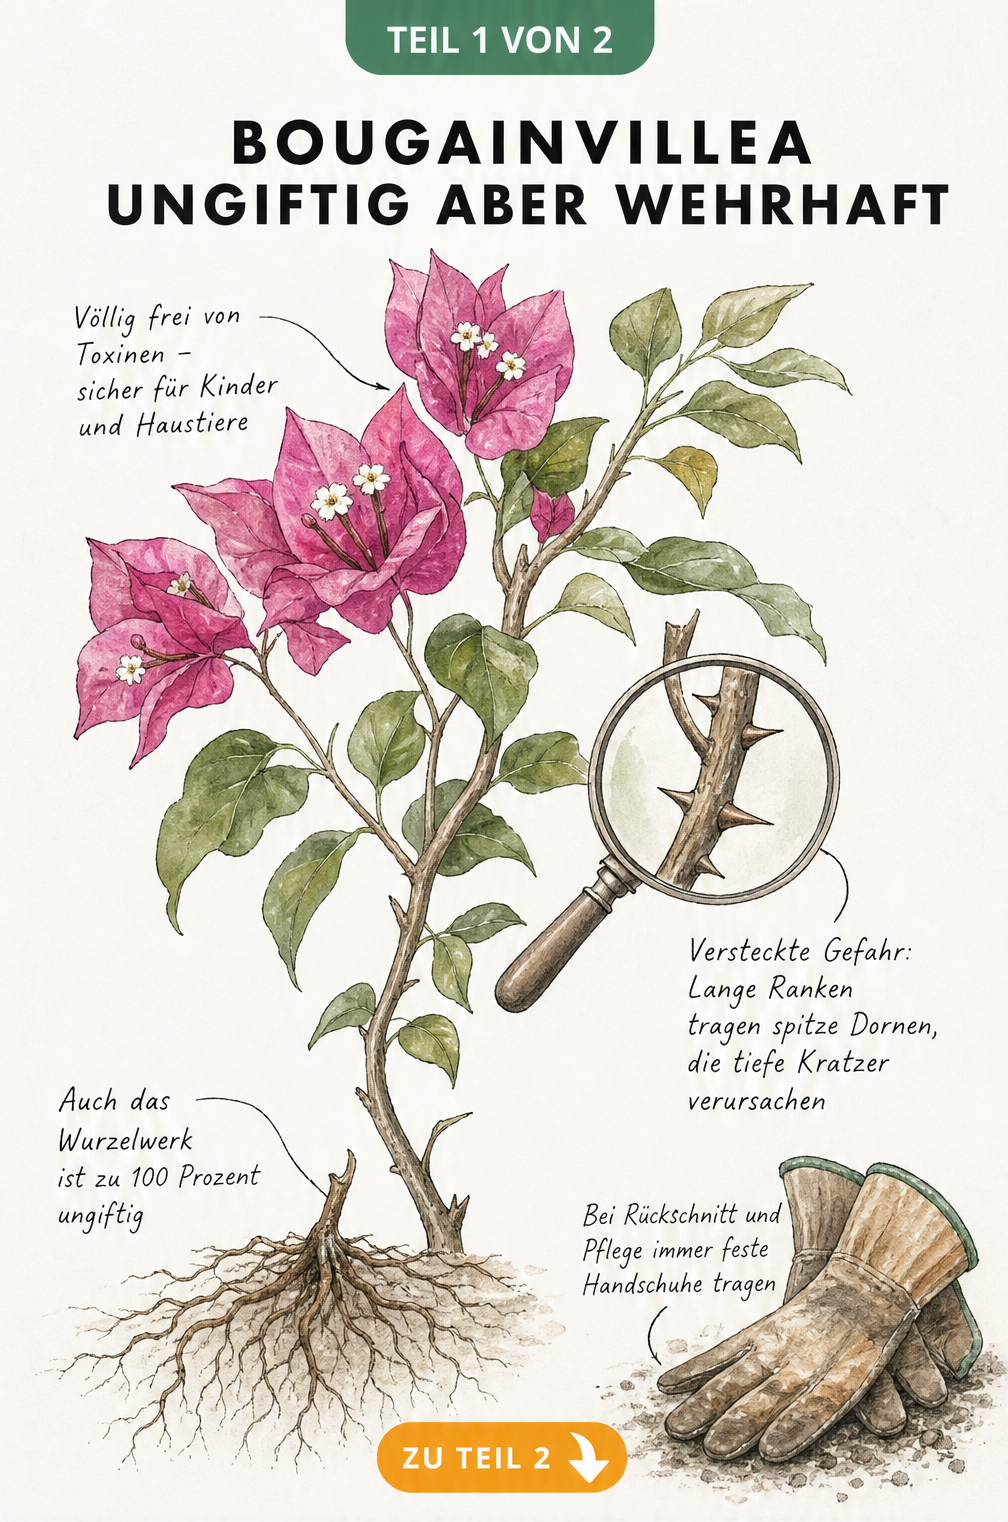 TEIL 1 VON 2
BOUGAINVILLEA
UNGIFTIG ABER WEHRHAFT
Völlig frei von
Toxinen –
sicher für Kinder
und Haustiere
Versteckte Gefahr:
Lange Ranken
tragen spitze Dornen,
die tiefe Kratzer
verursachen
Auch das
Wurzelwerk
ist zu 100 Prozent
ungiftig
Bei Rückschnitt und
Pflege immer feste
Handschuhe tragen
ZU TEIL 2